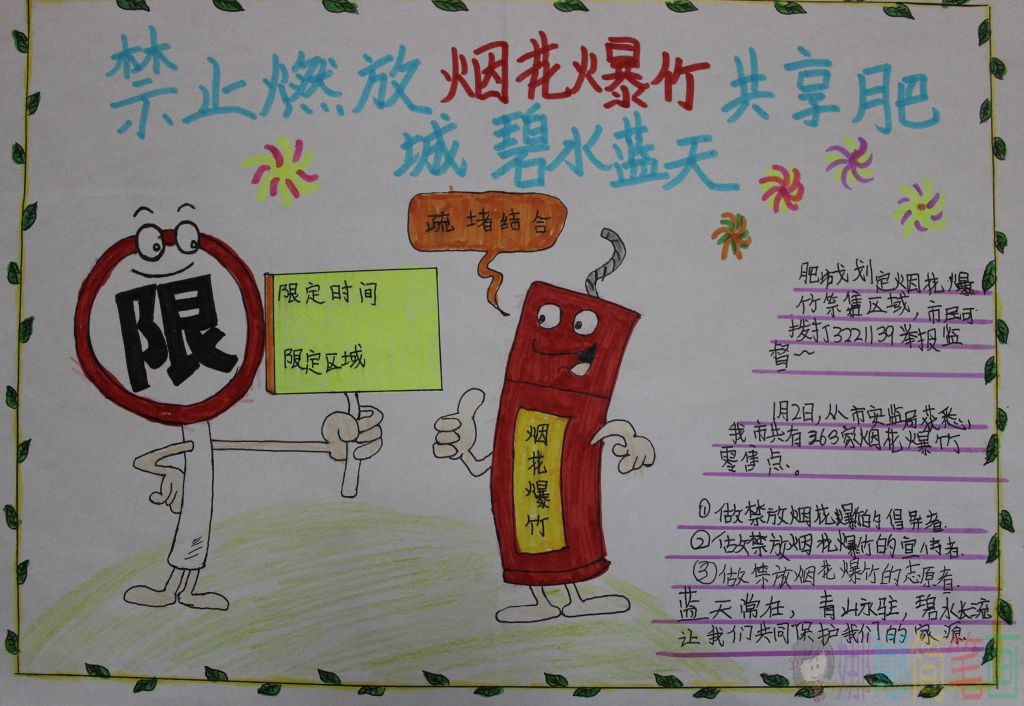 禁止燃放烟花爆竹共享肥
城碧水蓝天
疏堵结合
限
限定时间
限定区域
烟花爆竹
肥城划定烟花爆
竹禁售区域，市民可
拨打3221139举报监
督~
1月2日，从市安监局获悉，
我市共有363家烟花爆竹
零售点。
①做禁放烟花爆竹的倡导者.
②做禁放烟花爆竹的宣传者.
③做禁放烟花爆竹的志原者.
蓝天常在，青山永驻，碧水长流
让我们共同保护我们的家源.
简笔画